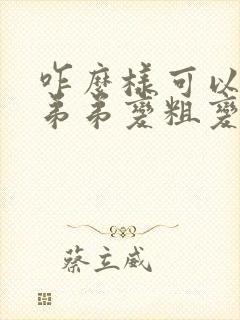 咋麼樣可以
弟弟變粗變
蔡立威